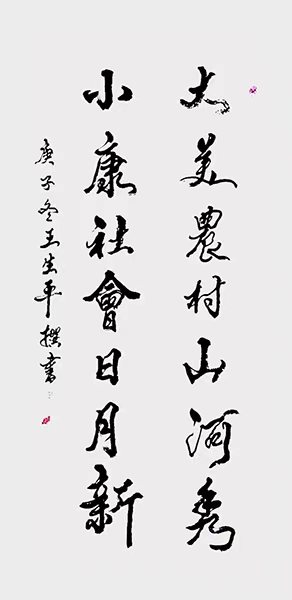 大美農村山河秀
小康社會日月新
庚子冬王生平撰書